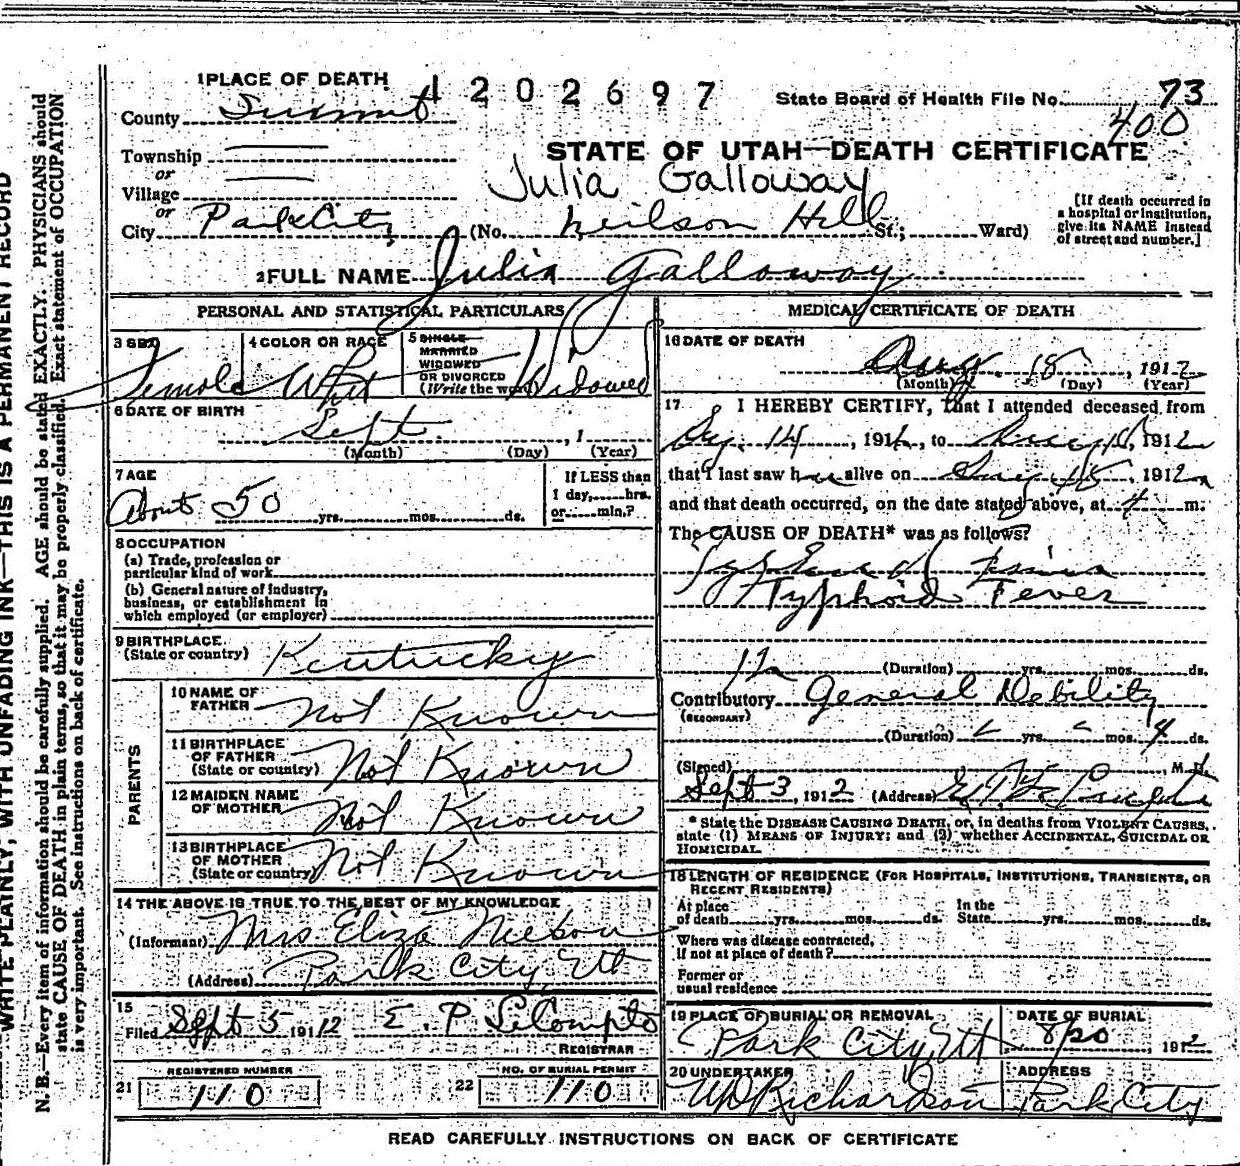 1 PLACE OF DEATH
1202697
State Board of Health File No. 73
400
County Summit
STATE OF UTAH—DEATH CERTIFICATE
Township
or
Village
Julia Galloway
or
City Park City (No. Neilson Hill St.; Ward)
[If death occurred in
a hospital or institution,
give its NAME instead
of street and number.]
2 FULL NAME Julia Galloway
PERSONAL AND STATISTICAL PARTICULARS
3 SEX
Female
4 COLOR OR RACE
Whit
5 SINGLE
MARRIED
WIDOWED
OR DIVORCED
(Write the word)
Widowed
6 DATE OF BIRTH
Sept. , 1
(Month) (Day) (Year)
7 AGE
About 50 yrs. mos. ds.
If LESS than
1 day, hrs.
or min.?
8 OCCUPATION
(a) Trade, profession or
particular kind of work
(b) General nature of industry,
business, or establishment in
which employed (or employer)
9 BIRTHPLACE
(State or country) Kentucky
PARENTS
10 NAME OF
FATHER Not Known
11 BIRTHPLACE
OF FATHER
(State or country) Not Known
12 MAIDEN NAME
OF MOTHER Not Known
13 BIRTHPLACE
OF MOTHER
(State or country) Not Known
14 THE ABOVE IS TRUE TO THE BEST OF MY KNOWLEDGE
(Informant) Mrs Eliza Neilson
(Address) Park City, Ut
15
Filed Sept 5 1912 E. P. LeCompte
REGISTRAR
REGISTERED NUMBER
21 110
NO. OF BURIAL PERMIT
22 110
MEDICAL CERTIFICATE OF DEATH
16 DATE OF DEATH
Aug. 18, 1912
(Month) (Day) (Year)
17 I HEREBY CERTIFY, that I attended deceased from
14, 191, to Aug 18, 1912
that I last saw h alive on Aug 18, 1912
and that death occurred, on the date stated above, at 4 m.
The CAUSE OF DEATH* was as follows:
Typhoid Fever
(Duration) yrs. mos. ds.
Contributory General Debility
(SECONDARY)
(Duration) yrs. mos. 4 ds.
(Signed) M. D.
Sept 3, 1912 (Address)
* State the DISEASE CAUSING DEATH, or, in deaths from VIOLENT CAUSES,
state (1) MEANS OF INJURY; and (2) whether ACCIDENTAL, SUICIDAL OR
HOMICIDAL.
18 LENGTH OF RESIDENCE (FOR HOSPITALS, INSTITUTIONS, TRANSIENTS, OR
RECENT RESIDENTS)
At place
of death yrs. mos. ds.
In the
State yrs. mos. ds.
Where was disease contracted,
if not at place of death?
Former or
usual residence
19 PLACE OF BURIAL OR REMOVAL
Park City, Ut
DATE OF BURIAL
8/20 1912
20 UNDERTAKER
WD Richardson
ADDRESS
Park City
READ CAREFULLY INSTRUCTIONS ON BACK OF CERTIFICATE
WRITE PLAINLY, WITH UNFADING INK—THIS IS A PERMANENT RECORD
N. B.—Every item of information should be carefully supplied. AGE should be stated EXACTLY. PHYSICIANS should
state CAUSE OF DEATH in plain terms, so that it may be properly classified. Exact statement of OCCUPATION
is very important. See instructions on back of certificate.